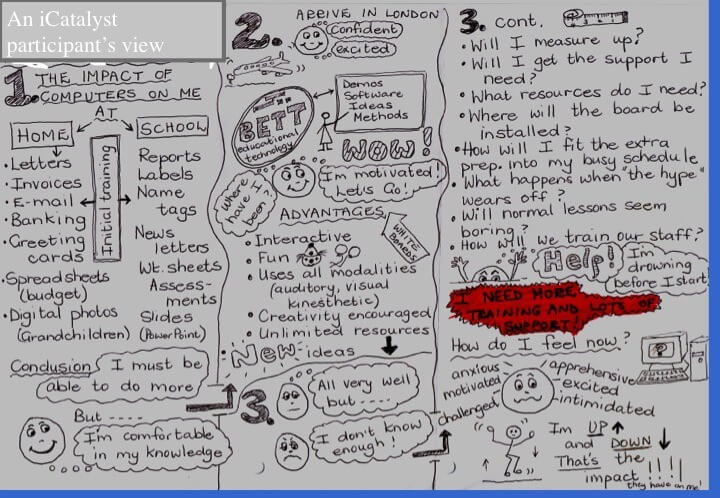 An iCatalyst
participant's view
1. THE IMPACT OF
COMPUTERS ON ME
AT
HOME
• Letters
• Invoices
• E-mail
• Banking
• Greeting
cards
• Spreadsheets
(budget)
• Digital photos
(Grandchildren)
Initial training
SCHOOL
Reports
Labels
Name
tags
News
letters
Wt. sheets
Assess-
ments
Slides
(PowerPoint)
Conclusion
I must be
able to do more
But ----
I'm comfortable
in my knowledge
2. ARRIVE IN LONDON
Confident
excited
BETT
educational
technology
Demos
Software
Ideas
Methods
WOW!
Where
have I
been?
I'm motivated!
Let's Go!
ADVANTAGES
WHITE
BOARDS
• Interactive
• Fun
• Uses all modalities
(auditory, visual
kinesthetic)
• Creativity encouraged
• Unlimited resources
• New ideas
3.
All very well
but ----
I don't know
enough!
3. cont.
• Will I measure up?
• Will I get the support I
need?
• What resources do I need?
• Where will the board be
installed?
• How will I fit the extra
prep. into my busy schedule
• What happens when "the hype"
wears off?
• Will normal lessons seem
boring?
• How will we train our staff?
Help!
I'm
drowning
before I start
I NEED MORE
TRAINING AND LOTS OF
SUPPORT!
How do I feel now?
?
anxious
motivated
challenged
apprehensive
excited
intimidated
I'm UP
and DOWN
That's the
impact !!!!
they have on me!